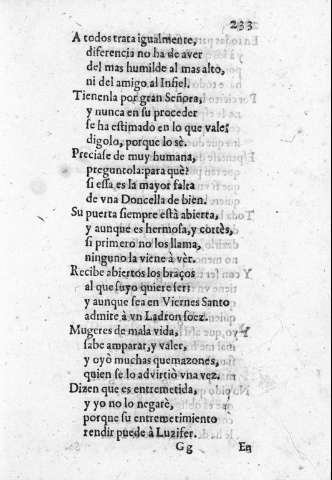 233
A todos trata igualmente,
diferencia no ha de aver
del mas humilde al mas alto,
ni del amigo al Infiel.
Tienenla por gran Señora,
y nunca en su proceder
se ha estimado en lo que vale;
digolo, porque lo sè.
Preciase de muy humana,
preguntola: para què?
si essa es la mayor falta
de vna Doncella de bien.
Su puerta siempre està abierta,
y aunque es hermosa, y cortès,
si primero no los llama,
ninguno la viene à vèr.
Recibe abiertos los braços
al que suyo quiere ser;
y aunque sea en Viernes Santo
admite à vn Ladron soez.
Mugeres de mala vida,
sabe amparar, y valer,
y oyò muchas quemazones,
quien se lo advirtiò vna vez.
Dizen que es entremetida,
y yo no lo negarè,
porque su entremetimiento
rendir puede à Luzifer.
Gg En